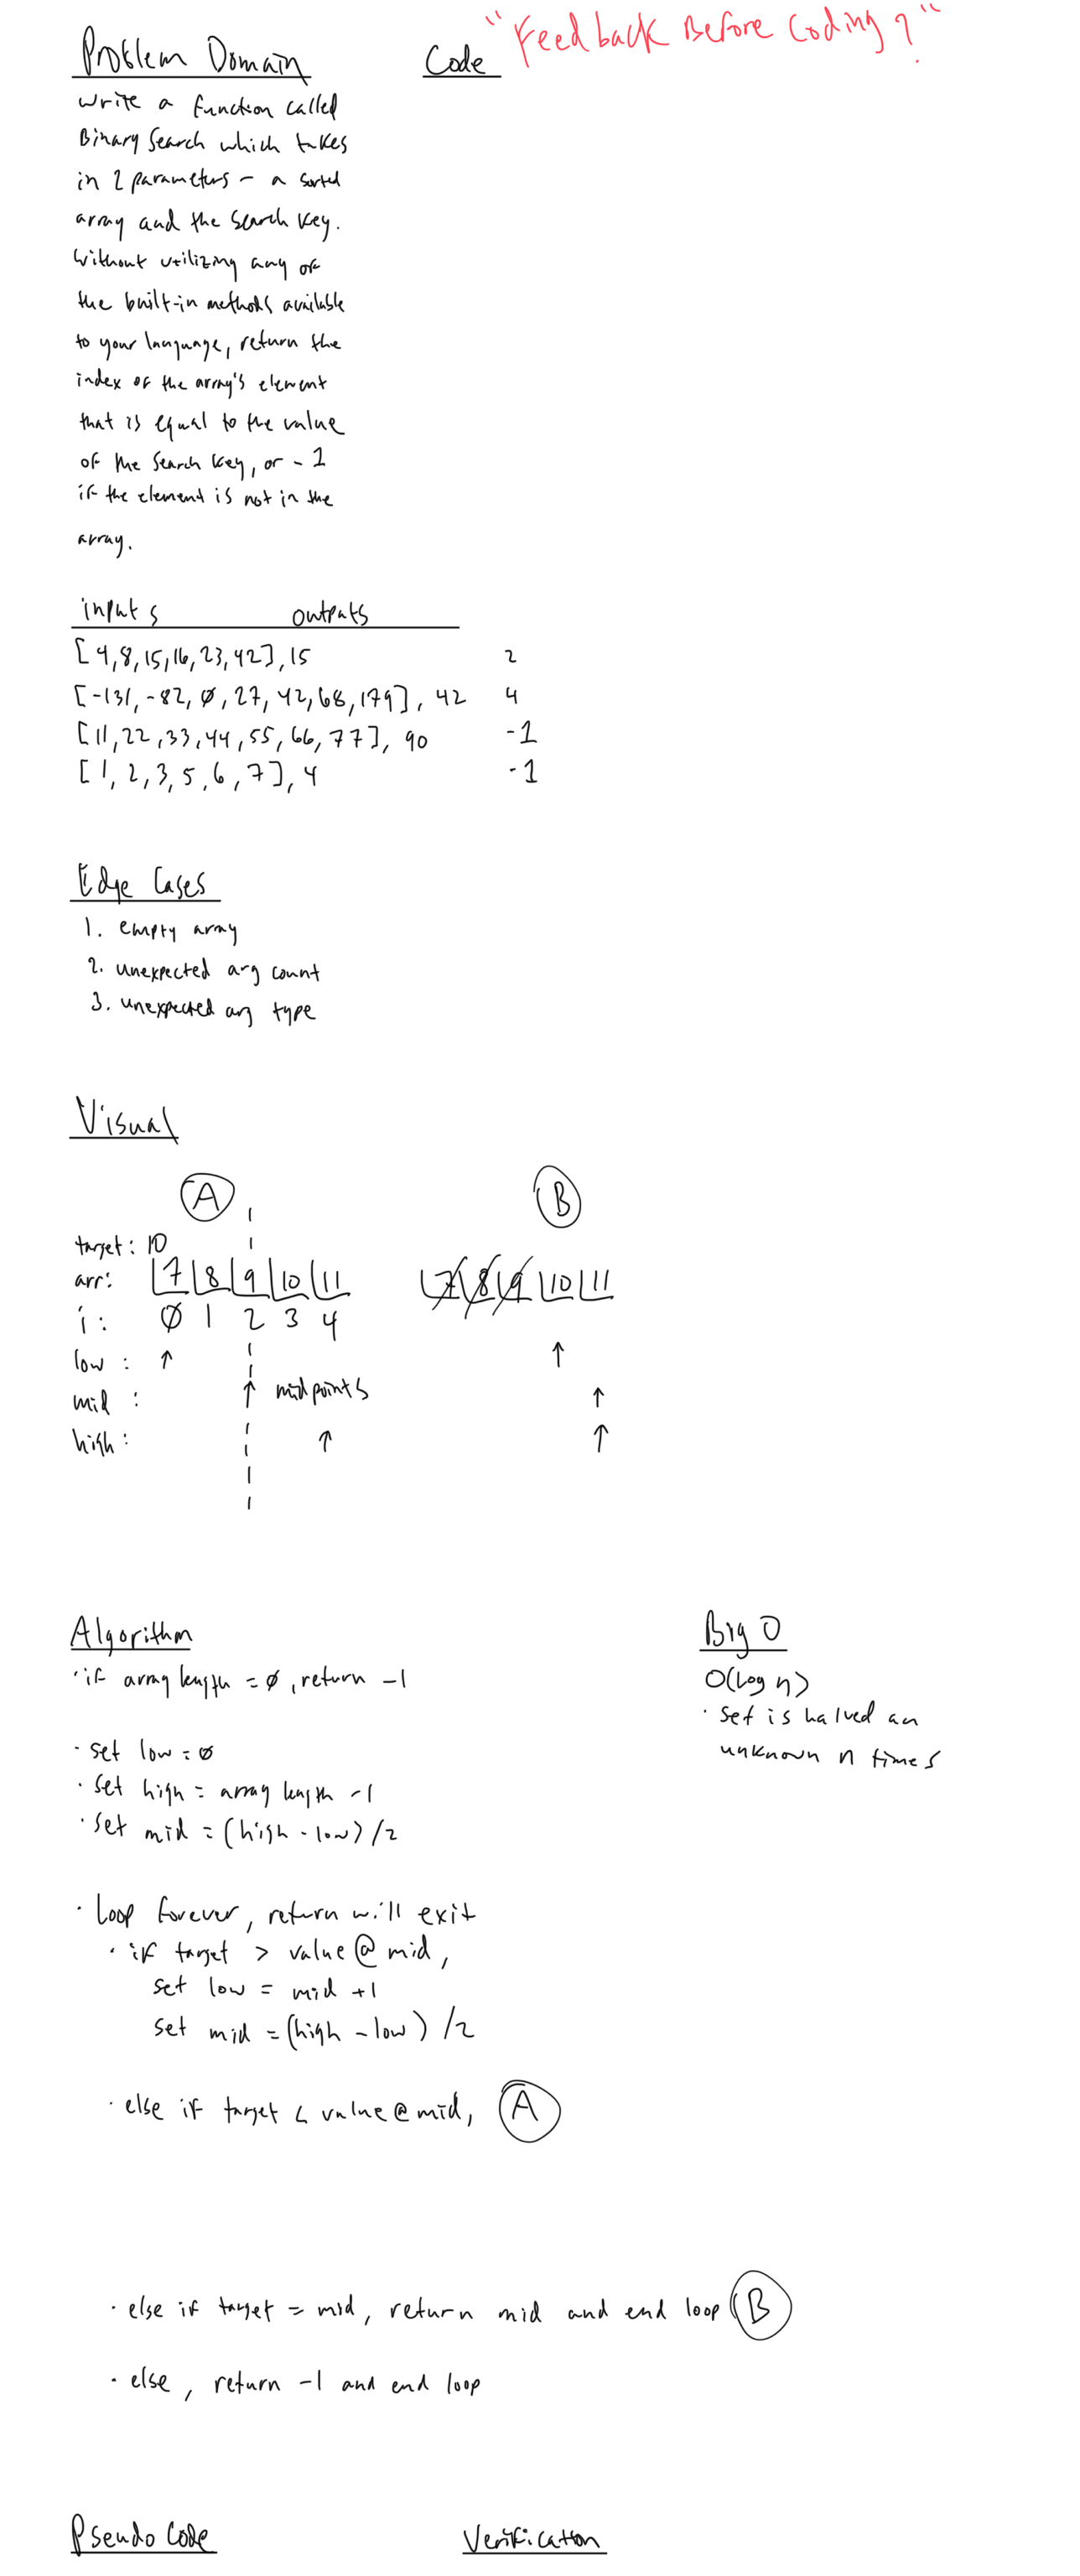 "Feedback Before Coding?"
Problem Domain
Code
Write a function called
Binary Search which takes
in 2 parameters - a sorted
array and the search key.
Without utilizing any of
the built-in methods available
to your language, return the
index of the array's element
that is equal to the value
of the search key, or -1
if the element is not in the
array.
inputs outputs
[4,8,15,16,23,42], 15 2
[-131, -82, 0, 27, 42, 68, 179], 42 4
[11,22,33,44,55,66,77], 90 -1
[1, 2, 3, 5, 6, 7], 4 -1
Edge Cases
1. empty array
2. unexpected arg count
3. unexpected arg type
Visual
A B
target: 10
arr: 7 8 9 10 11 7 8 9 10 11
i: 0 1 2 3 4
low: ↑ ↑
mid: ↑ midpoints ↑
high: ↑ ↑
Algorithm
· if array length = 0, return -1
· set low = 0
· set high = array length -1
· set mid = (high - low) /2
· loop forever, return will exit
· if target > value @ mid,
set low = mid +1
set mid = (high - low) /2
· else if target < value @ mid, A
· else if target = mid, return mid and end loop B
· else, return -1 and end loop
Big O
O(log n)
· set is halved an
unknown n times
Pseudo Code
Verification